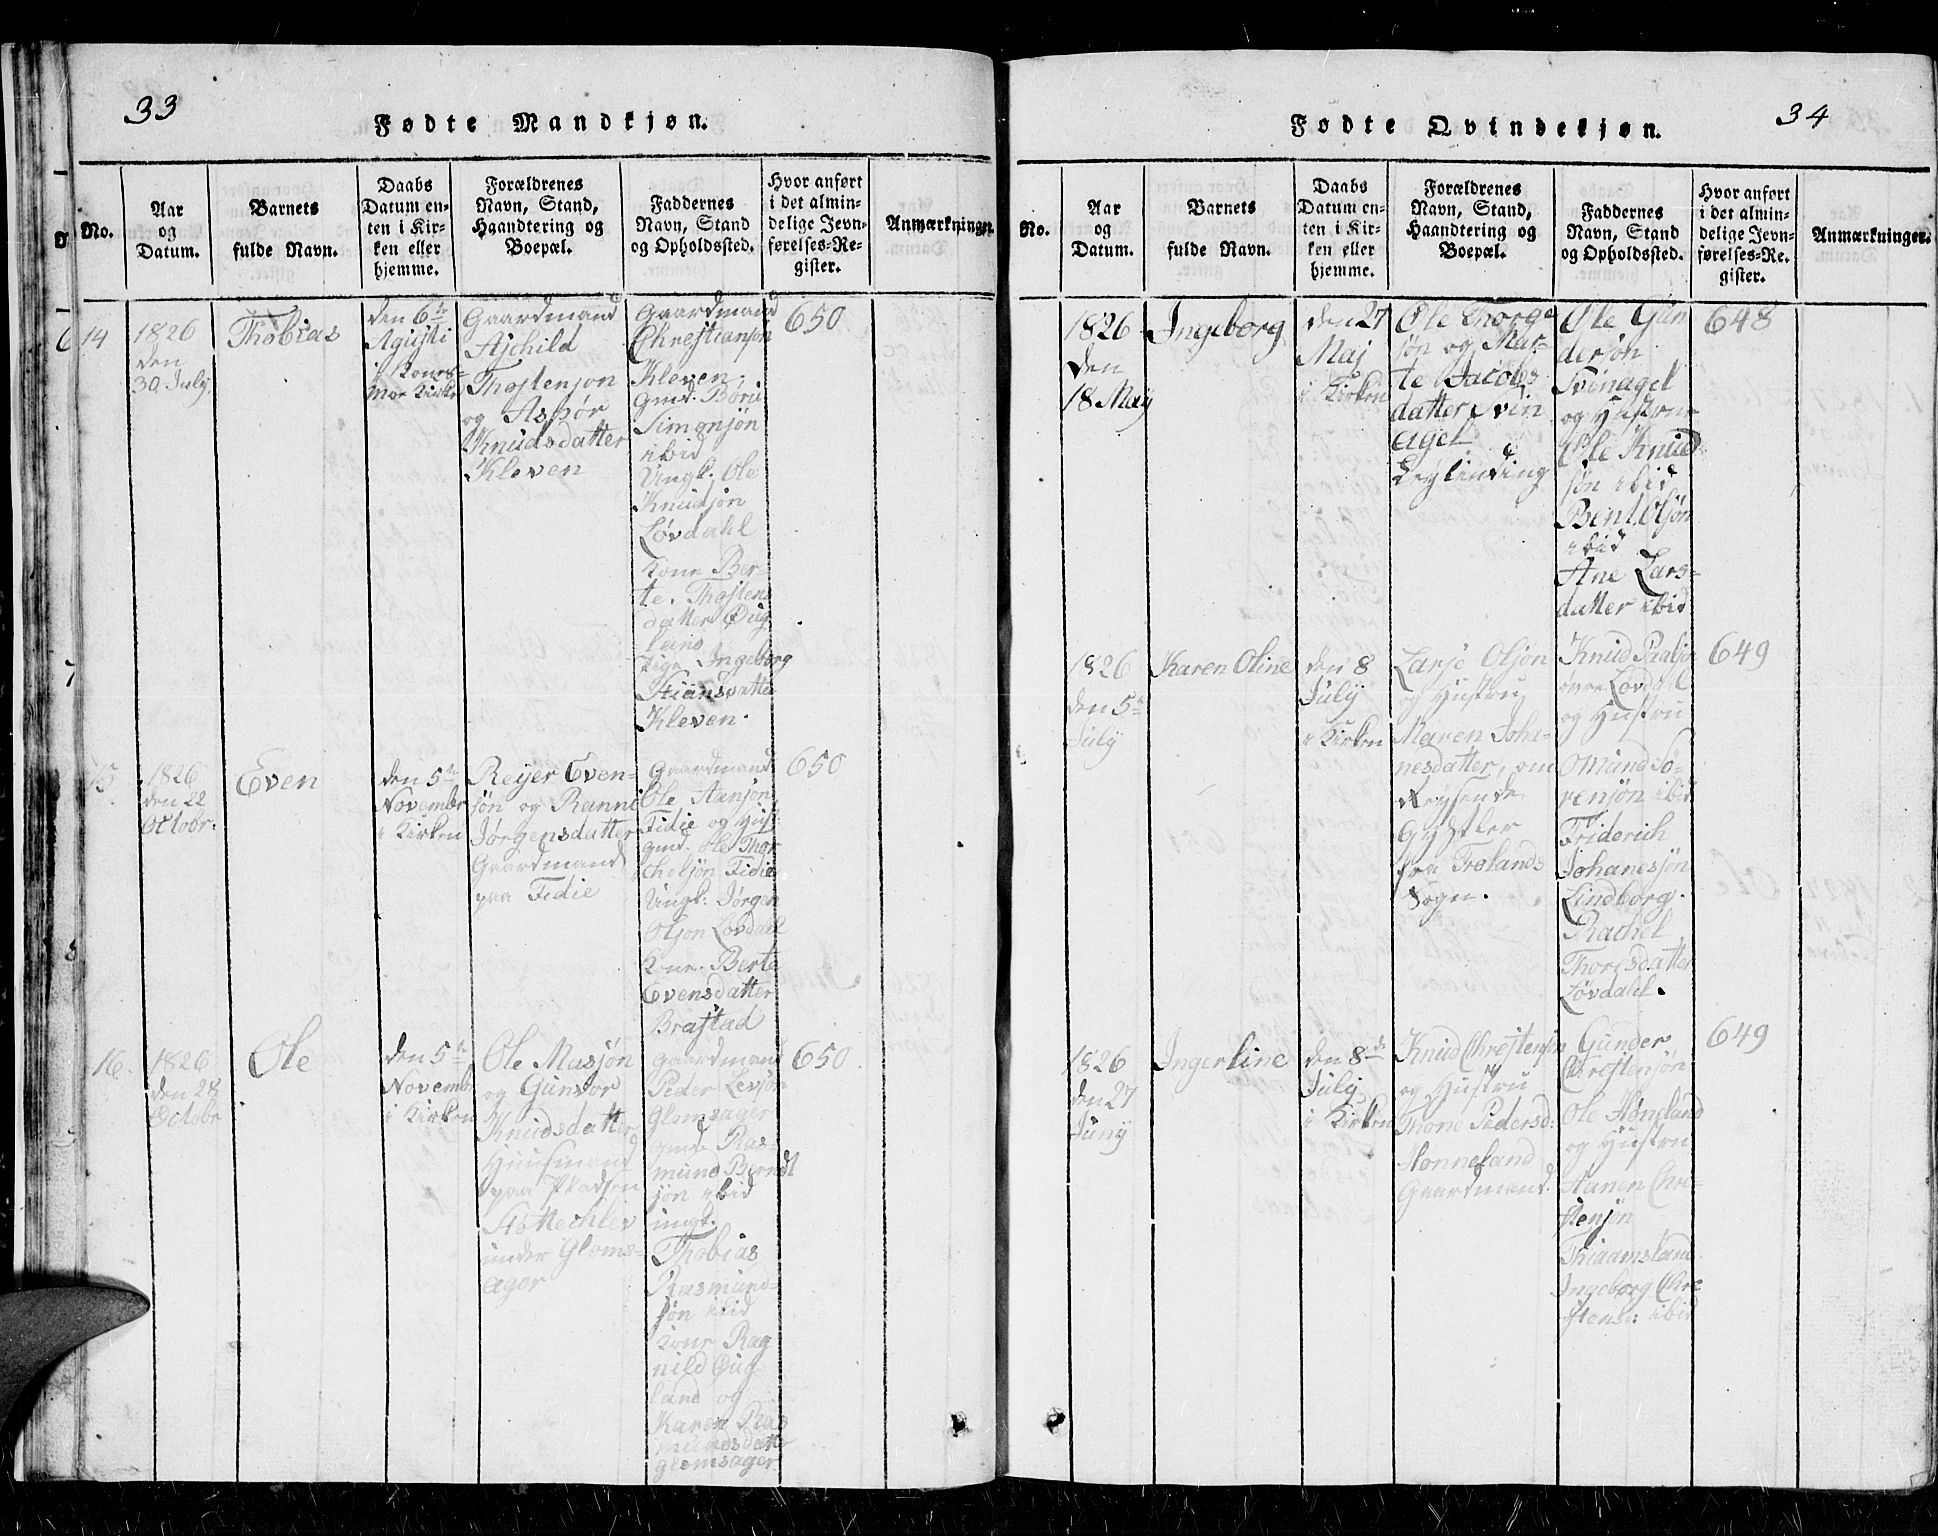 33
Fødte Mandkjøn.
No.
Aar
og
Datum.
Barnets
fulde Navn.
Daabs
Datum en-
ten i Kir-
ken eller
hjemme.
Forældrenes
Navn, Stand,
Haandtering og
Boepæl.
Faddernes
Navn, Stand
og Opholdssted.
Hvor anført
i det almin-
delige Jevn-
førelses-Re-
gister.
Anmærkninger.
14
1826
den
30 July
Thobias
den 6te
Agusti
i Kones-
moe Kirke
Gaardmand
Ajchild
Thostenson
og Asbør
Knudsdatter
Kleven
Gaardmand
Chrestianson
Kleven.
gmd. Børu
Simonjøn
ibid
Ungk. Ole
Knudsjøn
Løvdahl
Kone Ber-
te. Thostens
datter Øug
land
Pige Ingeborg
Kleven.
650
15
1826
den 22
Octobr.
Even
den 5te
Novembr
i Kirken
Reyer Even-
søn og Ranni
Jørgensdatter
Gaardmand
paa Fidie
Gaardmand
Ole Aanjøn
Fidie og Hus.
gmd. Ole Thor
cheljøn Fidie
Ungk: Jørgen
Oljøn Lovdahl
Kone. Berte
Evensdatter
Brastad
650
16.
1826
den 28
Octobr
Ole
den 5te
Novemb
i Kirken
Ole Masjøn
og Gunvor
Knudsdatter
Huusmand
paa Pladsen
under Gloms-
ager
gaardmand
Peder Levjøn
Glomsager
gmd. Ras-
mund Berndt
jøn ibid
ungk.
Thobias
Rasmund-
søn ibid
Kone Rag
nild Øug
land og
Karen Ras
mundsdatter
glomsager
650
34
Fødte Qvindekjøn.
No.
Aar
og
Datum.
Barnets
fulde Navn.
Daabs
Datum en-
ten i Kir-
ken eller
hjemme.
Forældrenes
Navn, Stand,
Haandtering og
Boepæl.
Faddernes
Navn, Stand
og Opholdssted.
Hvor anført
i det almin-
delige Jevn-
førelses-Re-
gister.
Anmærkninger.
1826
den
18 May
Ingeborg
den 27
Maj
i Kirken
Ole Thorge
søn og Mar-
te Jacobs
datter Svin
agel
Leylending
Ole Gun
dersøn
Svinagel
og Hustrue
Ole Knud
søn ibid
Bent Olsjøn
ibid
Ane Lars-
datter ibid
648
1826
den 5te
July
Karen Oline
den 8
July
i Kirken
Larse Oljøn
og Hustru
Maren Joha-
nesdatter, om
Reysende
fra
Sogn.
Knud Paalsje
øvre Lovdal
og Hustru
Omund Sø-
renjøn ibid
Friderich
Johanesjøn
Lindborg.
Rachel
Thoresdatter
Løvdahl.
649
1826
den 27
Juny
Ingerline
den 8de
July
i Kirken
Knud Chrestensjøn
og Hustru
Thone Pedersd:
Honneland
Gaardmand.
Gunder
Chrestensjøn
Ole Honneland
og Hustru
Aanen Chri-
stenjøn
Ingeborg Chre
stensd: ibid
649